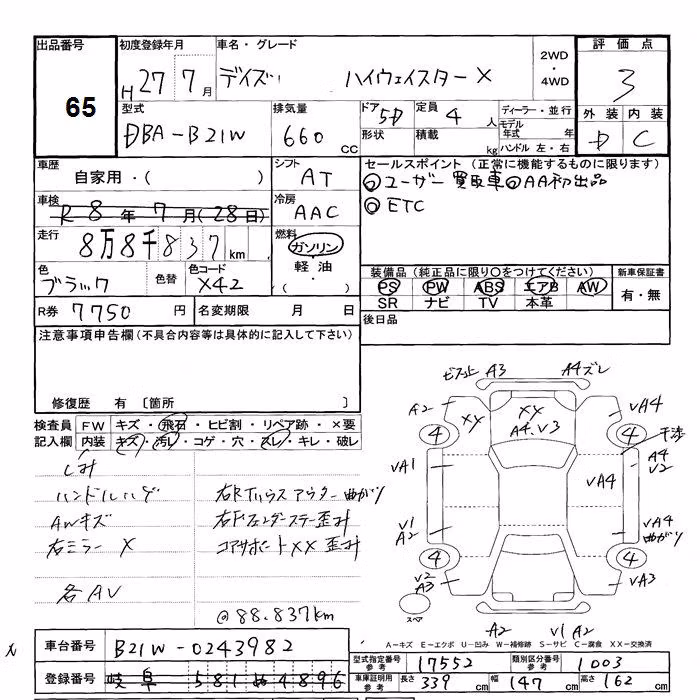 出品番号 65
初度登録年月 H 27年 7月
車名・グレード デイズ ハイウェイスター X
2WD・4WD
評価点 3
外装 D 内装 C
型式 DBA-B21W
排気量 660 CC
ドア 5D
形状
定員 4 人
積載 kg
ディーラー・並行
モデル年式 年式
ハンドル 左・右
車歴 自家用・( )
シフト AT
車検 R 8年 7月(28日)
冷房 AAC
走行 8万8千837 km
燃料 ガソリン・軽油・( )
色 ブラック
色替
色コード X42
R券 7750 円
名変期限 月 日
セールスポイント(正常に機能するものに限ります)
◎ユーザー買取車 ◎AA初出品
◎ETC
装備品(純正品に限り○をつけてください)
PS PW ABS エアB AW
SR ナビ TV 本革
新車保証書 有・無
後日品
注意事項申告欄(不具合内容等は具体的に記入して下さい)
修復歴 有 〔箇所 〕
検査員記入欄
FW キズ・飛石・ヒビ割・リペア跡・×要
内装 キズ・汚レ・コゲ・穴・スレ・キレ・破レ
シミ
ハンドルハゲ
AWキズ
右ミラー X
各AV
右Rタハウスアウター曲がり
右Fフェンダーステー歪み
コアサポートXX歪み
@88.837km
A3 A4ズレ
A2 XY XY A4.V3 VA4
4 4 干渉
VA1 VA4 A4 V2
V1 A2 VA4 曲がり
4 4
V2 A3 VA3
スペア
A2 V1 A2
A-キズ E-エクボ U-凹み W-補修跡 S-サビ C-腐食 XX-交換済
車台番号 B21W-0243982
登録番号 岐阜 581 ぬ 4896
型式指定番号 参考 17552
類別区分番号 参考 1003
車庫証明用 参考 長さ 339 cm 幅 147 cm 高さ 162 cm